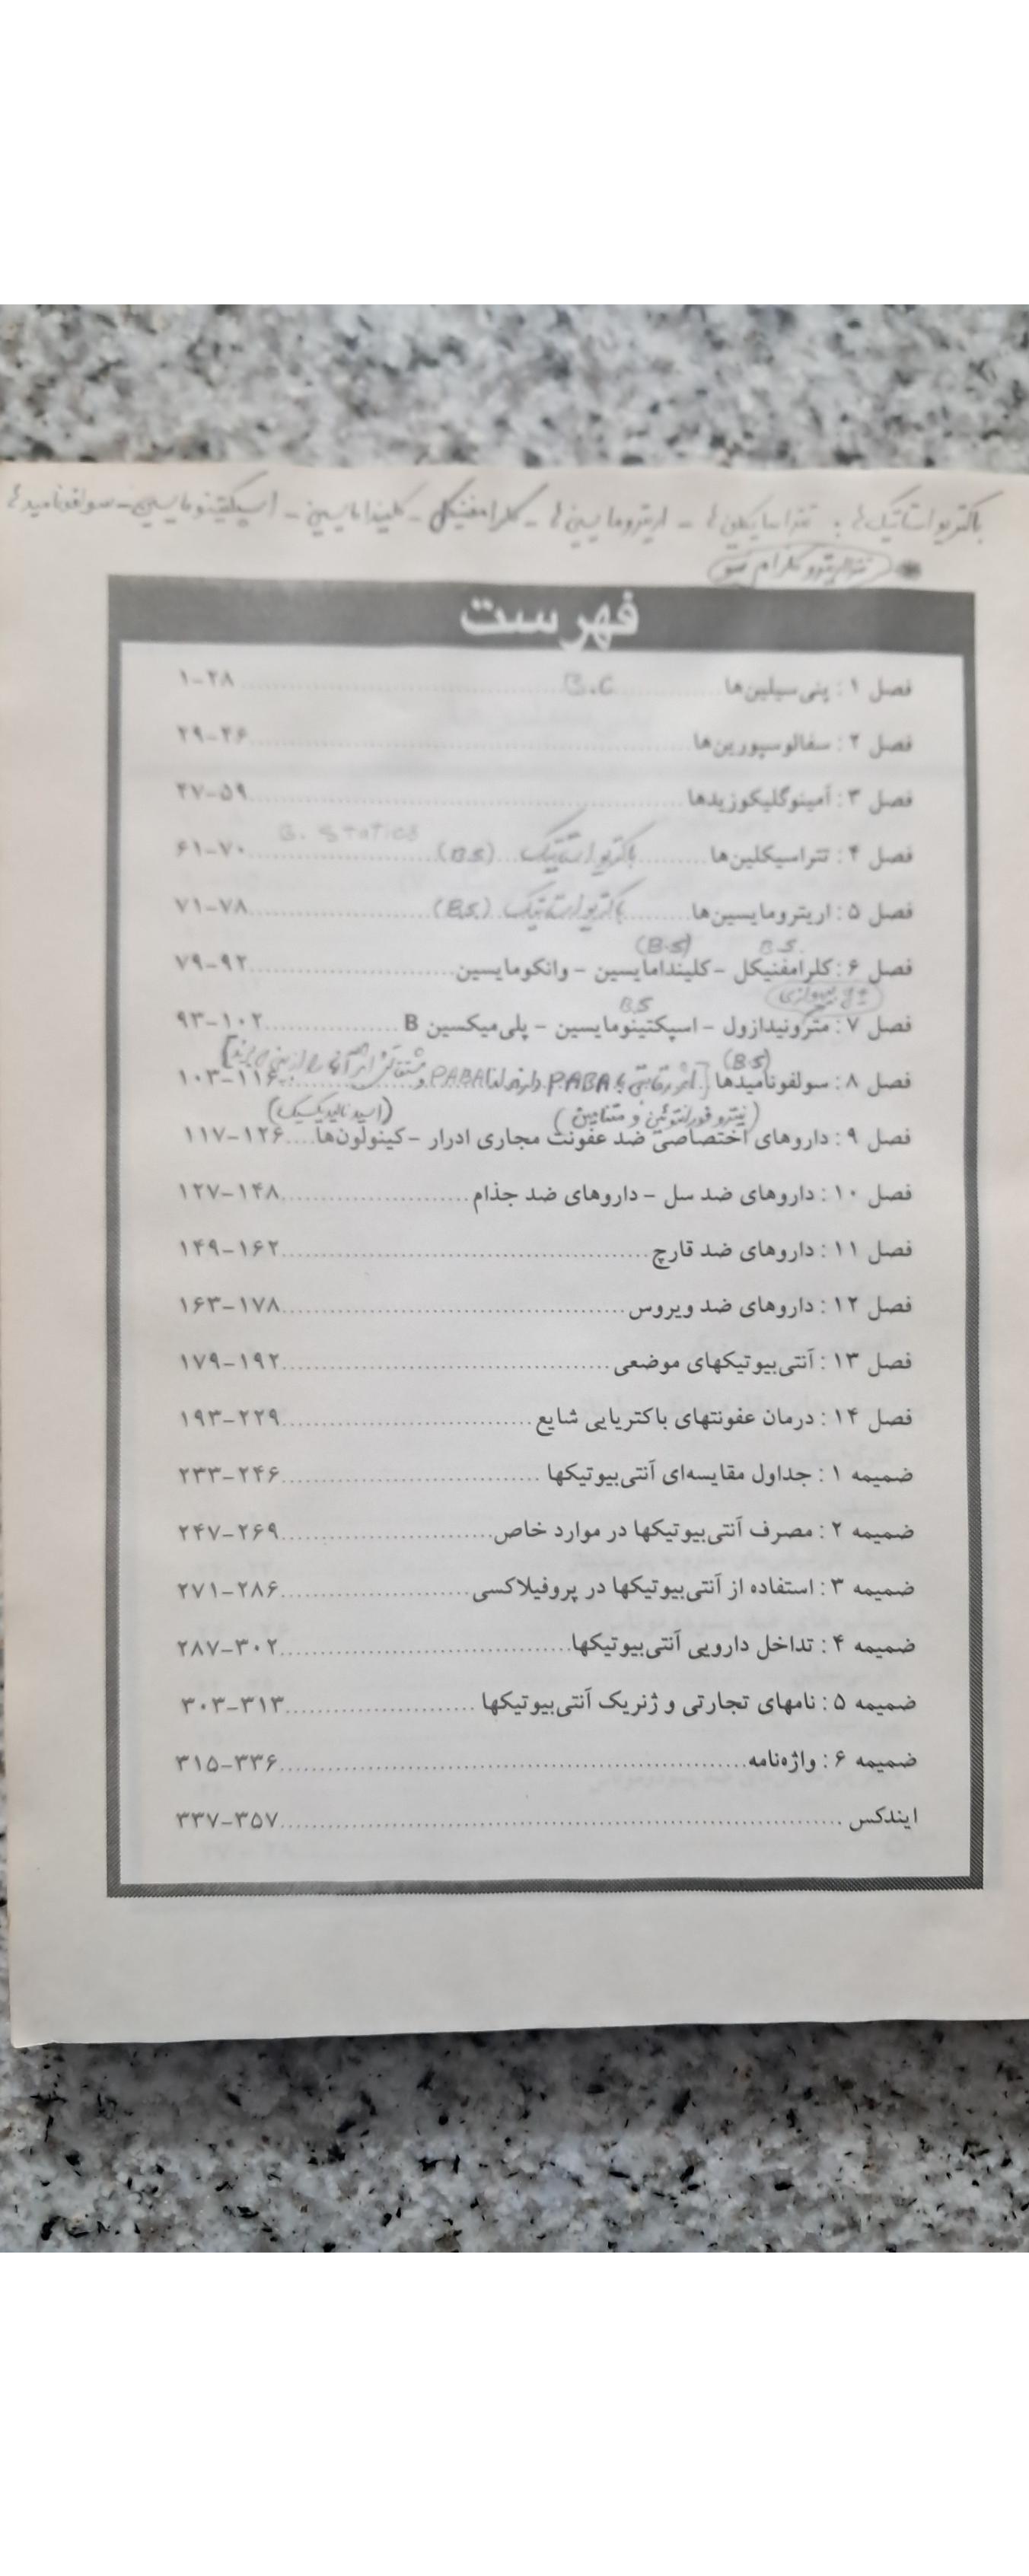 باکتریواستاتیک ها : تتراسایکلین ها - اریترومایسین ها - کلرامفنیکل - کلیندامایسین - اسپکتینومایسین - سولفونامیدها
فهرست
فصل ۱ : پنی‌سیلین‌ها B.C ۱-۲۸
فصل ۲ : سفالوسپورین‌ها ۲۹-۴۶
فصل ۳ : آمینوگلیکوزیدها ۴۷-۵۹
B. Statics
فصل ۴ : تتراسیکلین‌ها باکتریواستاتیک (B.S) ۶۱-۷۰
فصل ۵ : اریترومایسین‌ها باکتریواستاتیک (B.S.) ۷۱-۷۸
B.S. (B.S)
فصل ۶ : کلرامفنیکل - کلیندامایسین - وانکومایسین ۷۹-۹۲
B.S
فصل ۷ : مترونیدازول - اسپکتینومایسین - پلی‌میکسین B ۹۳-۱۰۲
(B.S)
فصل ۸ : سولفونامیدها [اثر رقابتی با PABA دارند لذا PABA و مشتقاتش اثر آنها را از بین می‌برند] ۱۰۳-۱۱۶
(نیتروفورانتوئین و متنامین) (اسید نالیدیکسیک)
فصل ۹ : داروهای اختصاصی ضد عفونت مجاری ادرار - کینولون‌ها ۱۱۷-۱۲۶
فصل ۱۰ : داروهای ضد سل - داروهای ضد جذام ۱۲۷-۱۴۸
فصل ۱۱ : داروهای ضد قارچ ۱۴۹-۱۶۲
فصل ۱۲ : داروهای ضد ویروس ۱۶۳-۱۷۸
فصل ۱۳ : آنتی‌بیوتیکهای موضعی ۱۷۹-۱۹۲
فصل ۱۴ : درمان عفونتهای باکتریایی شایع ۱۹۳-۲۲۹
ضمیمه ۱ : جداول مقایسه‌ای آنتی‌بیوتیکها ۲۳۳-۲۴۶
ضمیمه ۲ : مصرف آنتی‌بیوتیکها در موارد خاص ۲۴۷-۲۶۹
ضمیمه ۳ : استفاده از آنتی‌بیوتیکها در پروفیلاکسی ۲۷۱-۲۸۶
ضمیمه ۴ : تداخل دارویی آنتی‌بیوتیکها ۲۸۷-۳۰۲
ضمیمه ۵ : نامهای تجارتی و ژنریک آنتی‌بیوتیکها ۳۰۳-۳۱۳
ضمیمه ۶ : واژه‌نامه ۳۱۵-۳۳۶
ایندکس ۳۳۷-۳۵۷